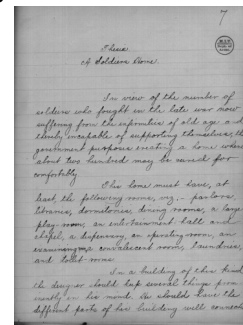 7
Thesis
A Soldiers Home.
In view of the number of
soldiers who fought in the late war now
suffering from the infirmities of old age and
thereby incapable of supporting themselves, the
government purposes erecting a home where
about two hundred may be cared for
comfortably.
This home must have, at
least, the following rooms, viz:- parlors,
libraries, dormitories, dining rooms, a large
play-room, an entertainment hall and
chapel, a dispensary, an operating room, an
examining room, convalescent rooms, laundries,
and toilet-rooms.
In a building of this kind
the designer should keep several things prom-
inently in his mind. He should have the
different parts of his building well connected